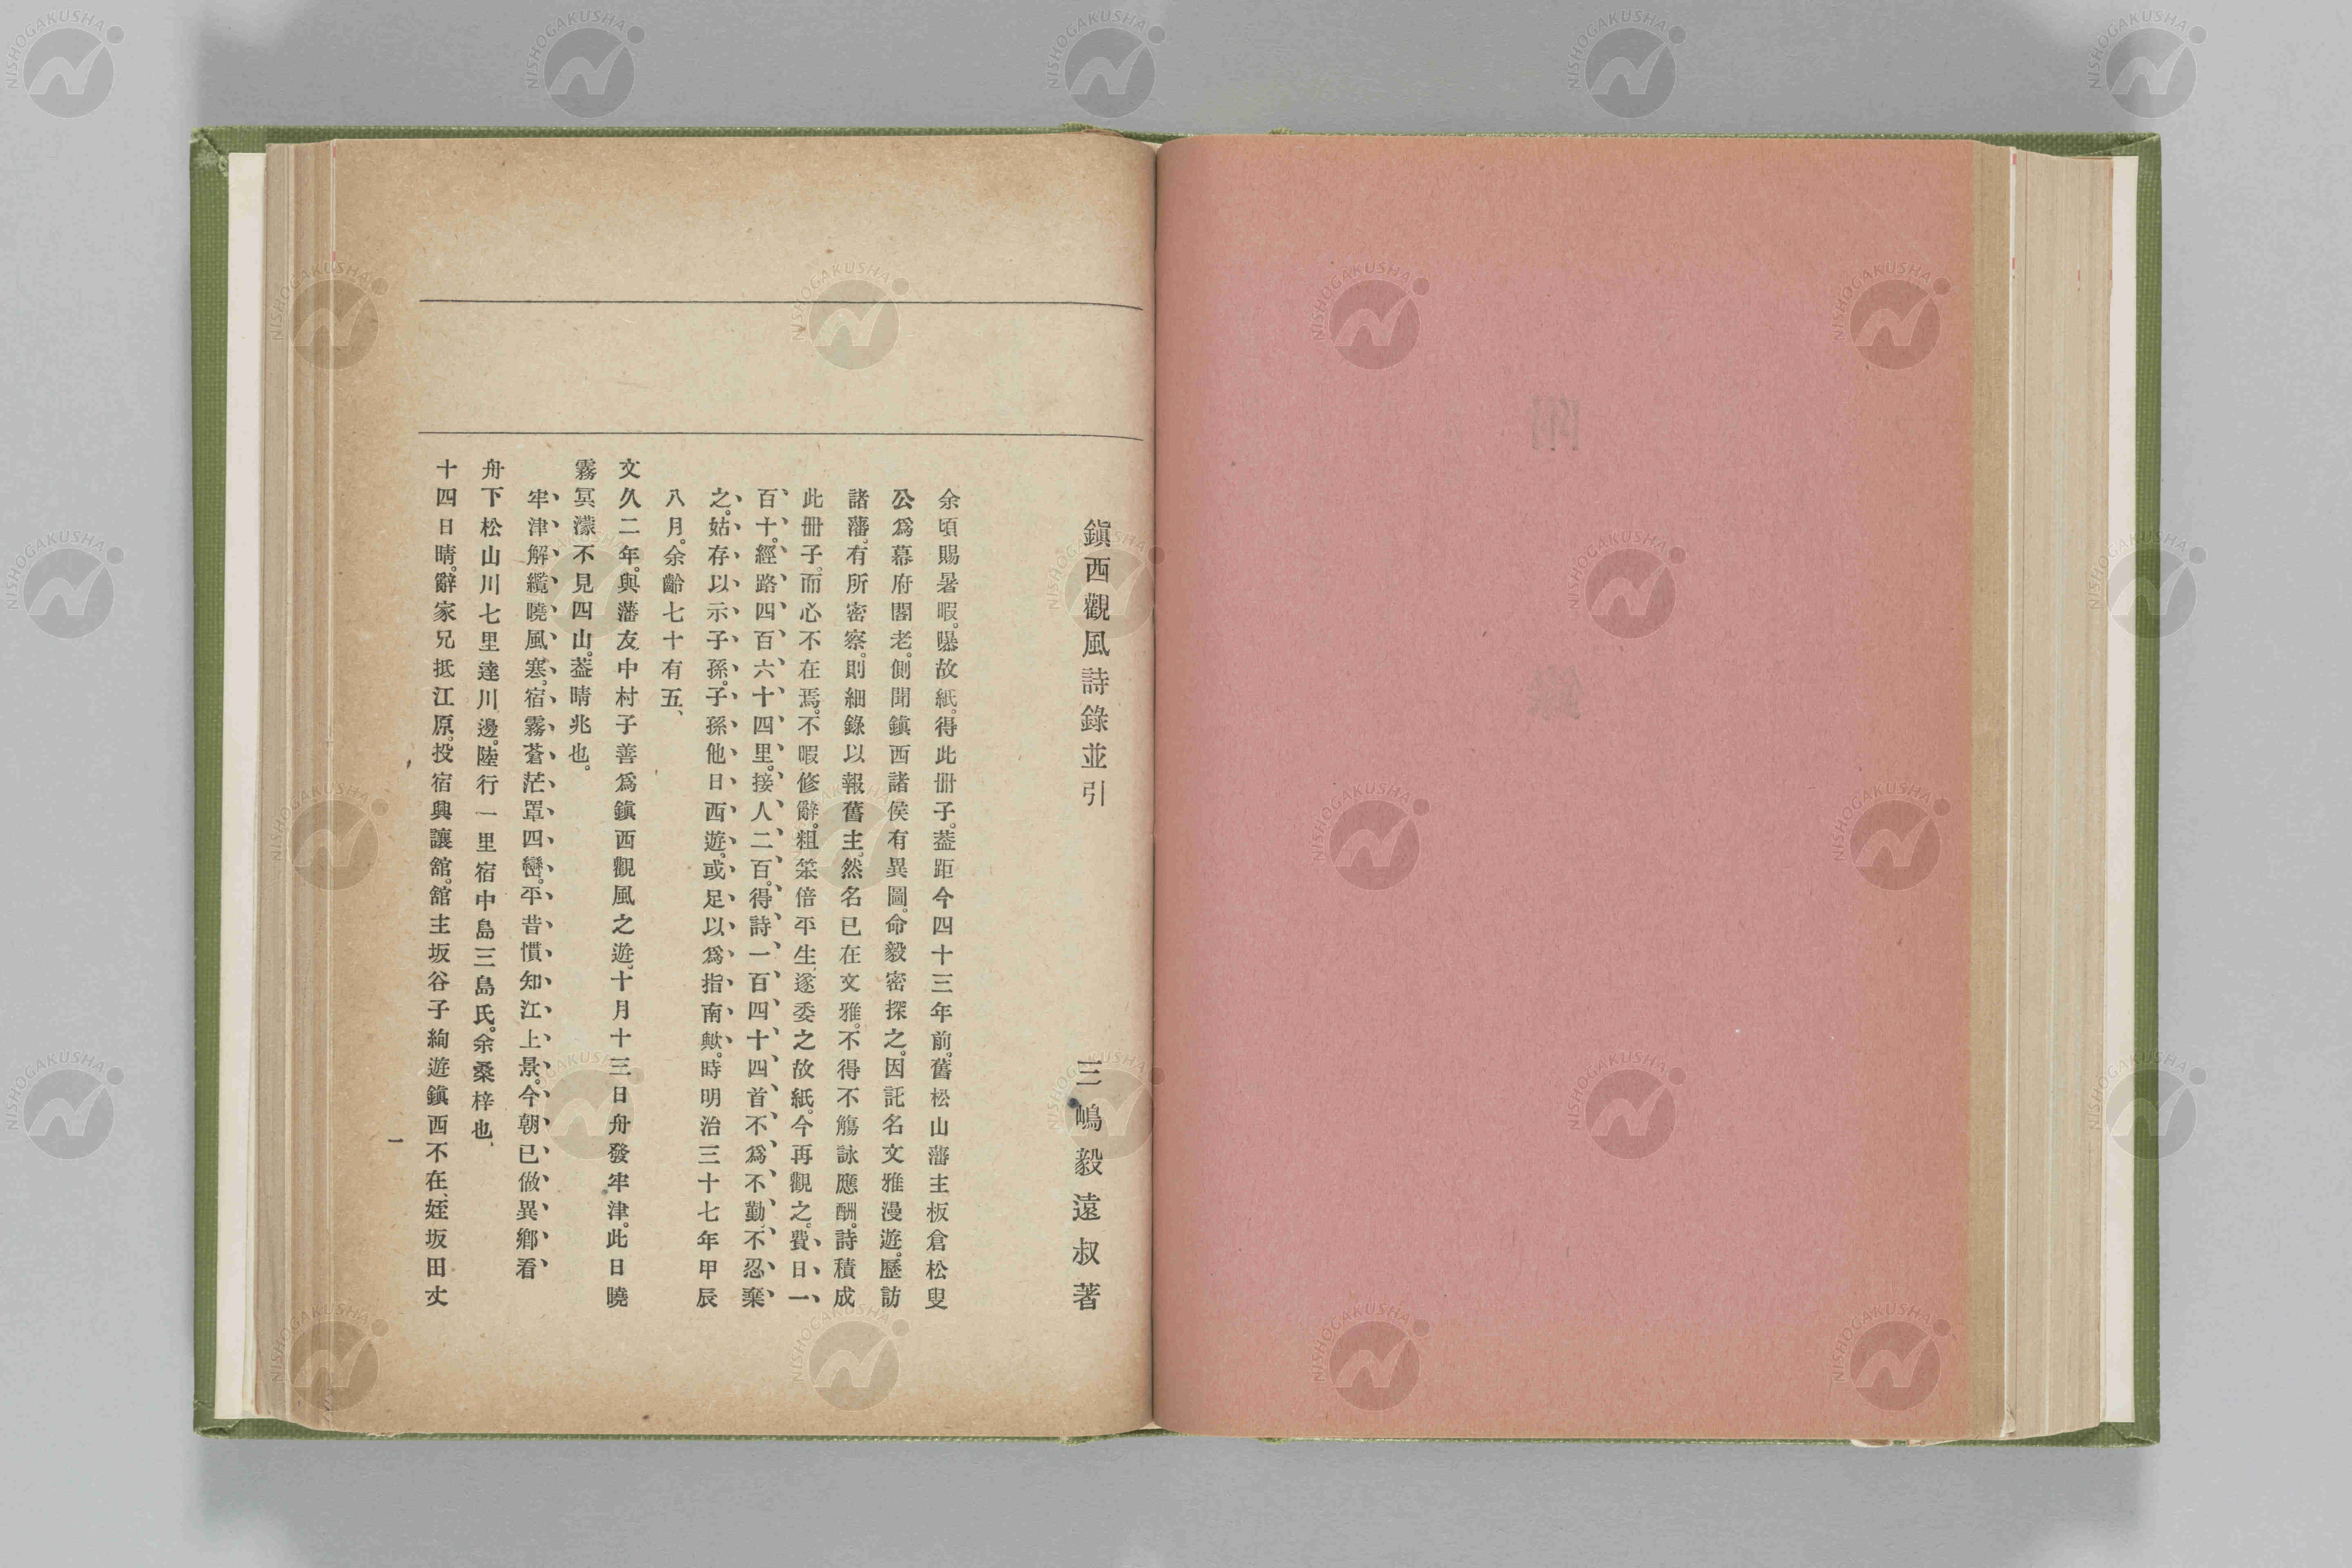 鎭西觀風詩錄並引
三嶋毅遠叔著
余頃賜暑暇。曝故紙。得此册子。葢距今四十三年前。舊松山藩主板倉松叟
公爲幕府閣老。側聞鎭西諸侯有異圖。命毅密探之。因託名文雅漫遊。歷訪
諸藩。有所密察。則細錄以報舊主。然名已在文雅。不得不觴詠應酬。詩積成
此册子。而心不在焉。不暇修辭。粗笨倍平生。遂委之故紙。今再觀之。費日一
百十。經路四百六十四里。接人二百。得詩一百四十四首。不爲不勤。不忍棄
之。姑存以示子孫。子孫他日西遊。或足以爲指南歟。時明治三十七年甲辰
八月。余齡七十有五、
文久二年。與藩友中村子善爲鎭西觀風之遊。十月十三日舟發牢津。此日曉
霧冥濛不見四山。葢晴兆也。
牢津解纜曉風寒。宿霧蒼茫罩四巒。平昔慣知江上景。今朝已做異鄕看
舟下松山川七里達川邊。陸行一里宿中島三島氏。余桑梓也、
十四日晴。辭家兄抵江原。投宿興讓舘。舘主坂谷子絢遊鎭西不在、姪坂田丈
一
NISHOGAKUSHA